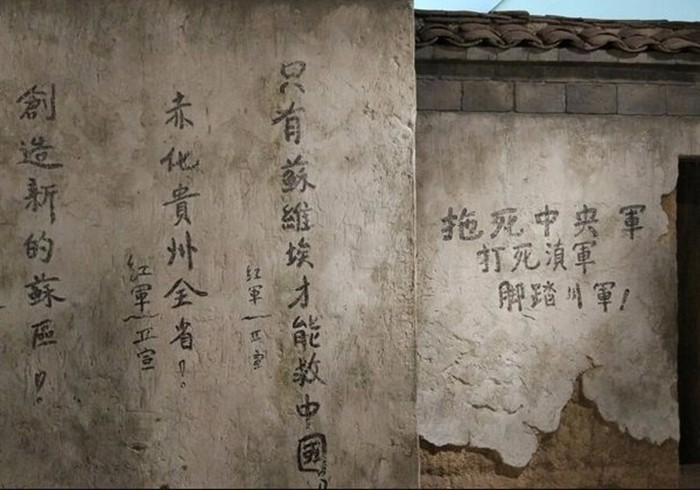 只有蘇維埃才能救中國。
紅軍 宣
赤化貴州全省！
紅軍 宣
創造新的蘇區！
拖死中央軍
打死滇軍
脚踏川軍！